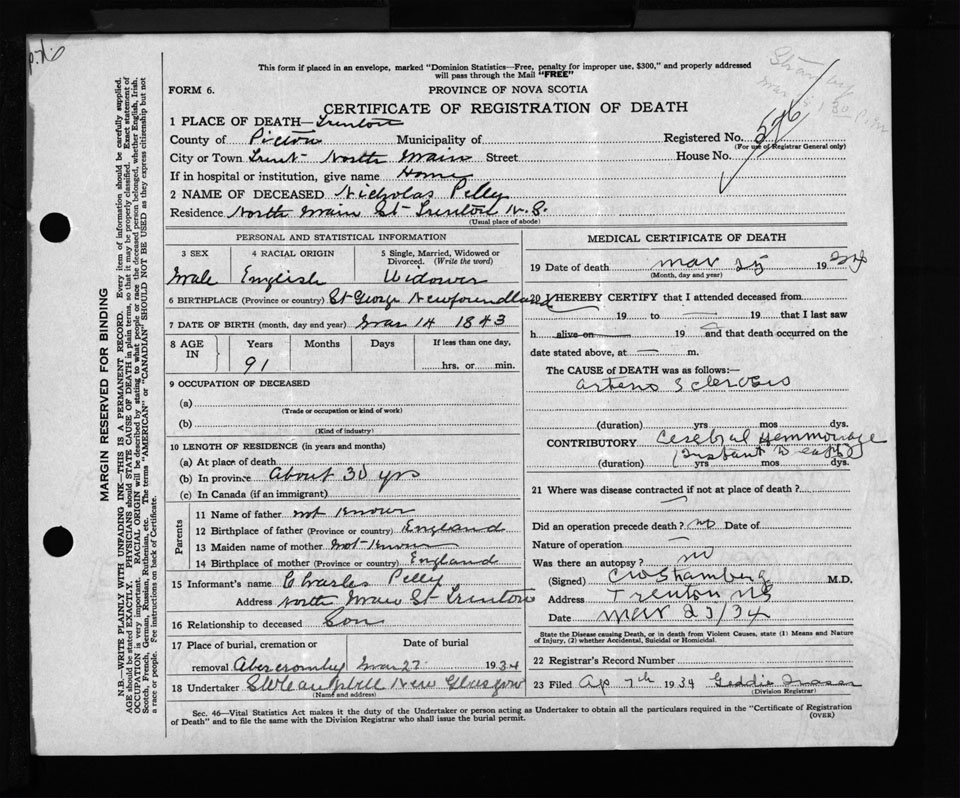 This form if placed in an envelope, marked "Dominion Statistics—Free, penalty for improper use, $300," and properly addressed
will pass through the Mail "FREE"
FORM 6.
PROVINCE OF NOVA SCOTIA
CERTIFICATE OF REGISTRATION OF DEATH
1 PLACE OF DEATH— Trenton
County of Pictou Municipality of Registered No. 576
(For use of Registrar General only)
City or Town Trent- North Main Street House No.
If in hospital or institution, give name Home
2 NAME OF DECEASED Nicholas Pelley
Residence North Main St- Trenton N.S.
(Usual place of abode)
PERSONAL AND STATISTICAL INFORMATION
3 SEX 4 RACIAL ORIGIN 5 Single, Married, Widowed or Divorced. (Write the word)
Male English Widower
6 BIRTHPLACE (Province or country) St George Newfoundland
7 DATE OF BIRTH (month, day and year) Mar 14 1843
8 AGE IN Years Months Days If less than one day,
91 hrs. or min.
9 OCCUPATION OF DECEASED
(a)
(Trade or occupation or kind of work)
(b)
(Kind of industry)
10 LENGTH OF RESIDENCE (in years and months)
(a) At place of death
(b) In province About 30 yrs
(c) In Canada (if an immigrant)
Parents
11 Name of father not Known
12 Birthplace of father (Province or country) England
13 Maiden name of mother Not-Known
14 Birthplace of mother (Province or country) England
15 Informant's name Charles Pelley
Address North Main St- Trenton
16 Relationship to deceased Son
17 Place of burial, cremation or Date of burial
removal Abercromby Mar 27 1934
18 Undertaker Campbell New Glasgow
(Name and address)
MEDICAL CERTIFICATE OF DEATH
19 Date of death Mar 25 1934
(Month, day and year)
20 I HEREBY CERTIFY that I attended deceased from
19 to 19 that I last saw
h alive on 19 and that death occurred on the
date stated above, at m.
The CAUSE of DEATH was as follows:—
Arterio Sclerosis
(duration) yrs mos dys.
CONTRIBUTORY Cerebral Hemmorage
(Instant Death)
(duration) yrs mos dys.
21 Where was disease contracted if not at place of death?
Did an operation precede death? no Date of
Nature of operation
Was there an autopsy? no
(Signed) Stramberg M.D.
Address Trenton NS
Date Mar 23/34
State the Disease causing Death, or in death from Violent Causes, state (1) Means and Nature
of Injury, (2) whether Accidental, Suicidal or Homicidal.
22 Registrar's Record Number
23 Filed Ap 7th 1934 Geddie Fraser
(Division Registrar)
Sec. 46—Vital Statistics Act makes it the duty of the Undertaker or person acting as Undertaker to obtain all the particulars required in the "Certificate of Registration
of Death" and to file the same with the Division Registrar who shall issue the burial permit. (OVER)
MARGIN RESERVED FOR BINDING
N.B.—WRITE PLAINLY WITH UNFADING INK—THIS IS A PERMANENT RECORD. Every item of information should be carefully supplied.
AGE should be stated EXACTLY. PHYSICIANS should STATE CAUSE OF DEATH in plain terms, so that it may be properly classified. Exact statement of
OCCUPATION is very important. RACIAL ORIGIN will be described by stating to what people or race the deceased person belonged, whether English, Irish,
Scotch, French, German, Russian, Ruthenian, etc. The terms "AMERICAN" or "CANADIAN" SHOULD NOT BE USED as they express citizenship but not
a race or people. See instructions on back of Certificate.